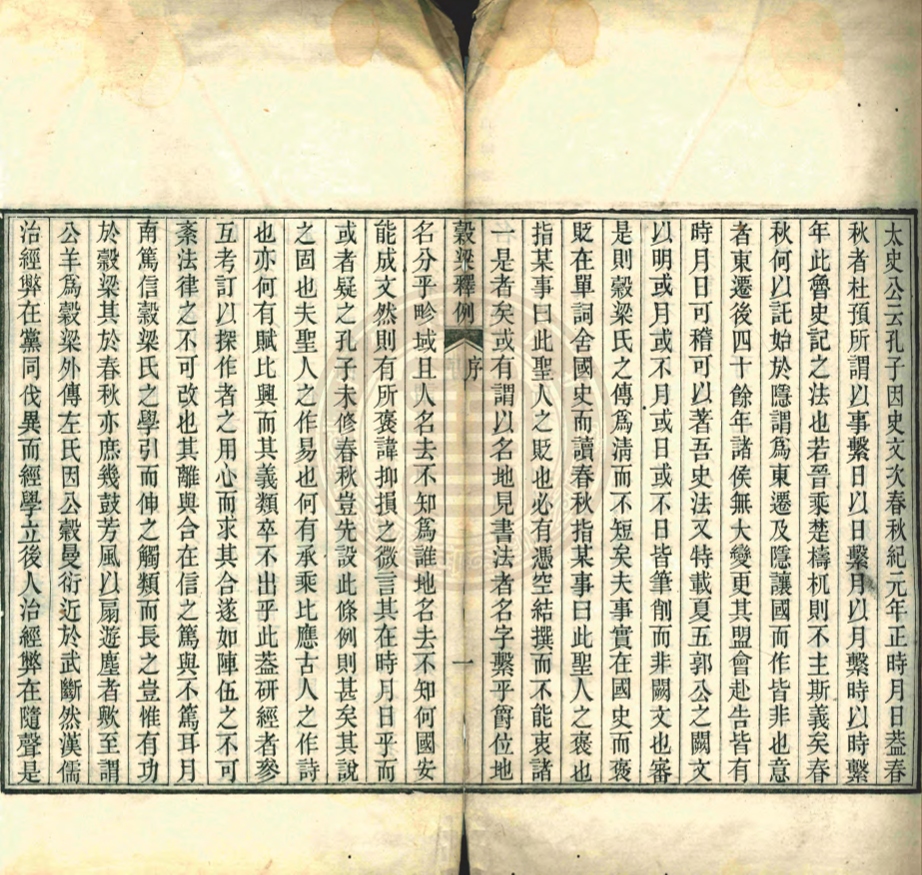 太史公云孔子因史文次春秋紀元年正時月日葢春
秋者杜預所謂以事繫日以日繫月以月繫時以時繫
年此魯史記之法也若晉乘楚檮杌則不主斯義矣春
秋何以託始於隱謂爲東遷及隱讓國而作皆非也意
者東遷後四十餘年諸侯無大變更其盟會赴告皆有
時月日可稽可以著吾史法又特載夏五郭公之闕文
以明或月或不月或日或不日皆筆削而非闕文也審
是則穀梁氏之傳爲清而不短矣夫事實在國史而褒
貶在單詞舍國史而讀春秋指某事曰此聖人之褒也
指某事曰此聖人之貶也必有憑空結撰而不能衷諸
一是者矣或有謂以名地見書法者名字繫乎爵位地
穀梁釋例 序 一
名分乎畛域且人名去不知爲誰地名去不知何國安
能成文然則有所褒諱抑損之微言其在時月日乎而
或者疑之孔子未修春秋豈先設此條例則甚矣其說
之固也夫聖人之作易也何有承乘比應古人之作詩
也亦何有賦比興而其義類卒不出乎此葢研經者參
互考訂以探作者之用心而求其合遂如陣伍之不可
紊法律之不可改也其離與合在信之篤與不篤耳月
南篤信穀梁氏之學引而伸之觸類而長之豈惟有功
於穀梁其於春秋亦庶幾鼓芳風以扇遊塵者歟至謂
公羊爲穀梁外傳左氏因公穀曼衍近於武斷然漢儒
治經弊在黨同伐異而經學立後人治經弊在隨聲是